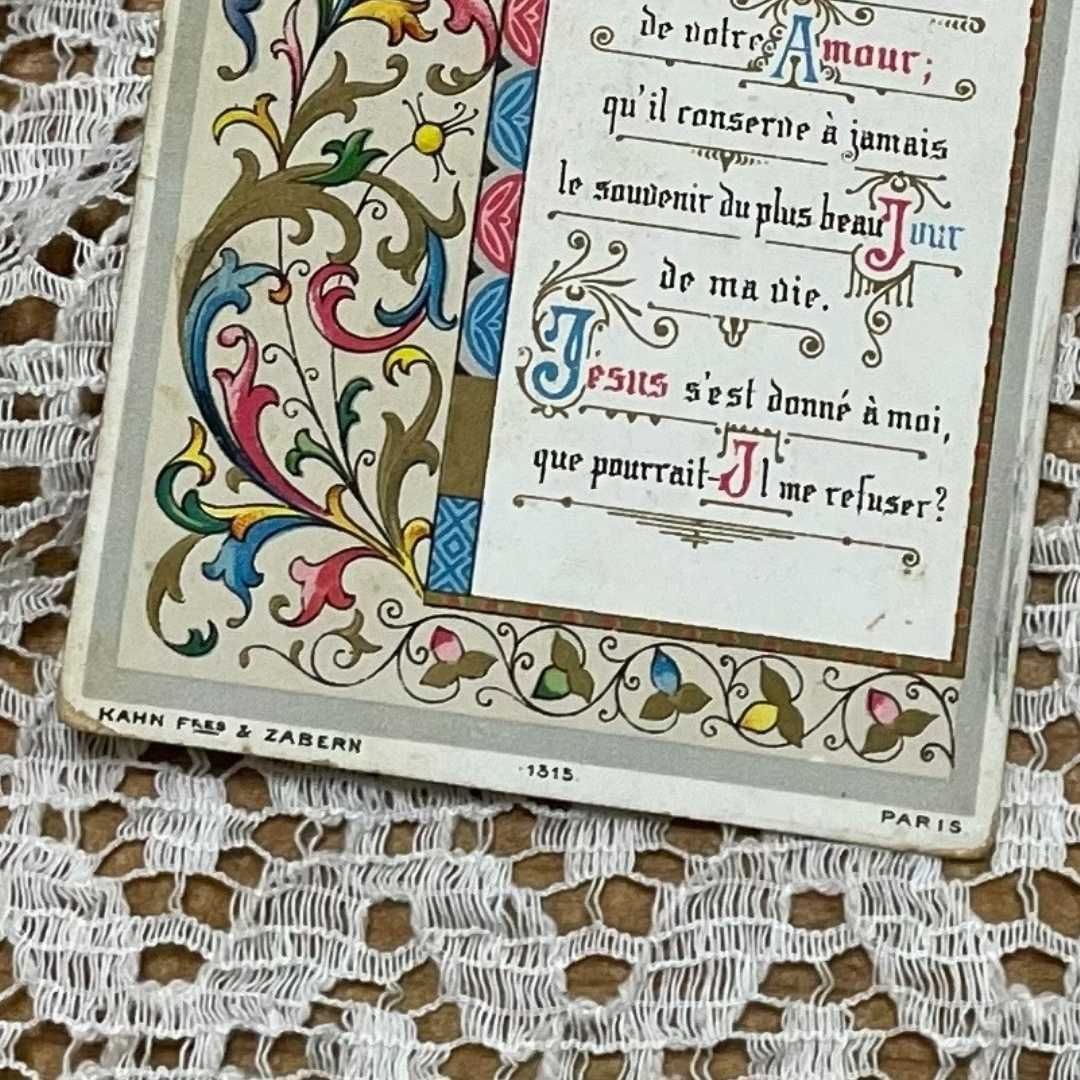 de votre Amour;
qu'il conserve à jamais
le souvenir du plus beau Jour
de ma vie.
Jésus s'est donné à moi,
que pourrait-Il me refuser?
KAHN FRES & ZABERN
1315
PARIS